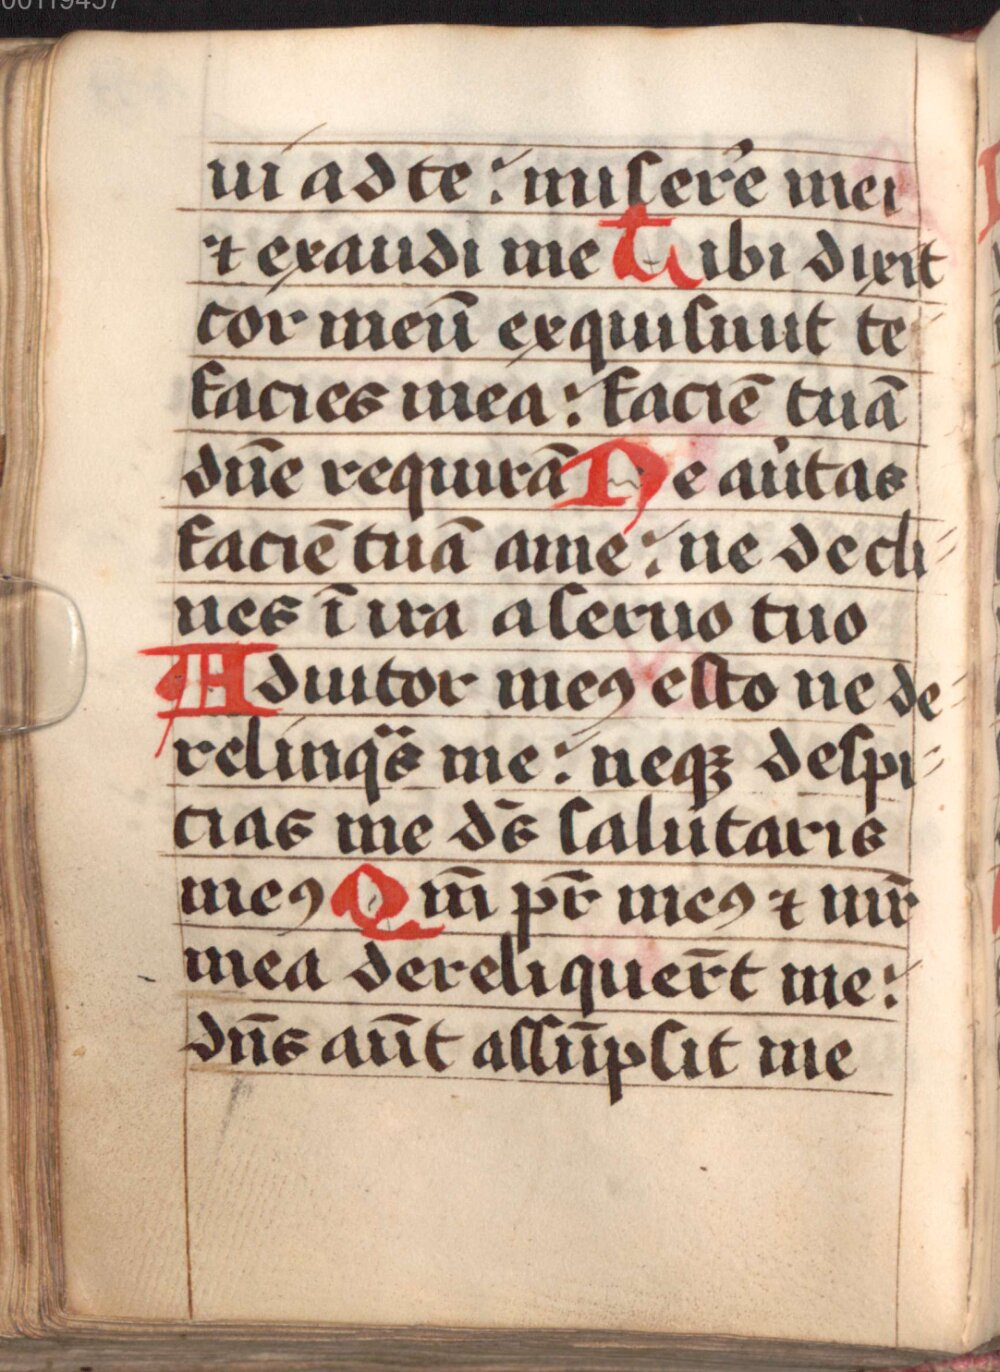 00119457
ui ad te : miserē mei
⁊ exaudi me Tibi dixit
cor meū exquisiuit te
facies mea : faciē tuā
dn̄e requirā Ne au᷑tas
faciē tuā ame : ne decli
nes ī ira a seruo tuo
Adiutor meꝯ esto ne de
relinq̄s me : neqꝫ despi
cias me ds̄ salutaris
meꝯ Qm̄ pr̄ meꝯ ⁊ mr̄
mea dereliquer̄t me :
dn̄s aūt assūpsit me